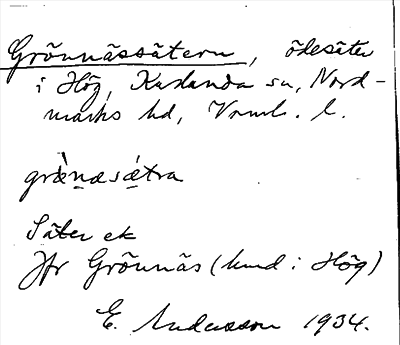 Grönnässätern, ödesäter
i Hög, Karlanda sn, Nord-
marks hd, Vrml. l.
græ̀næsǽtra
Säter ek
Jfr Grönnäs (hmd i Hög)
E. Andersson 1934.